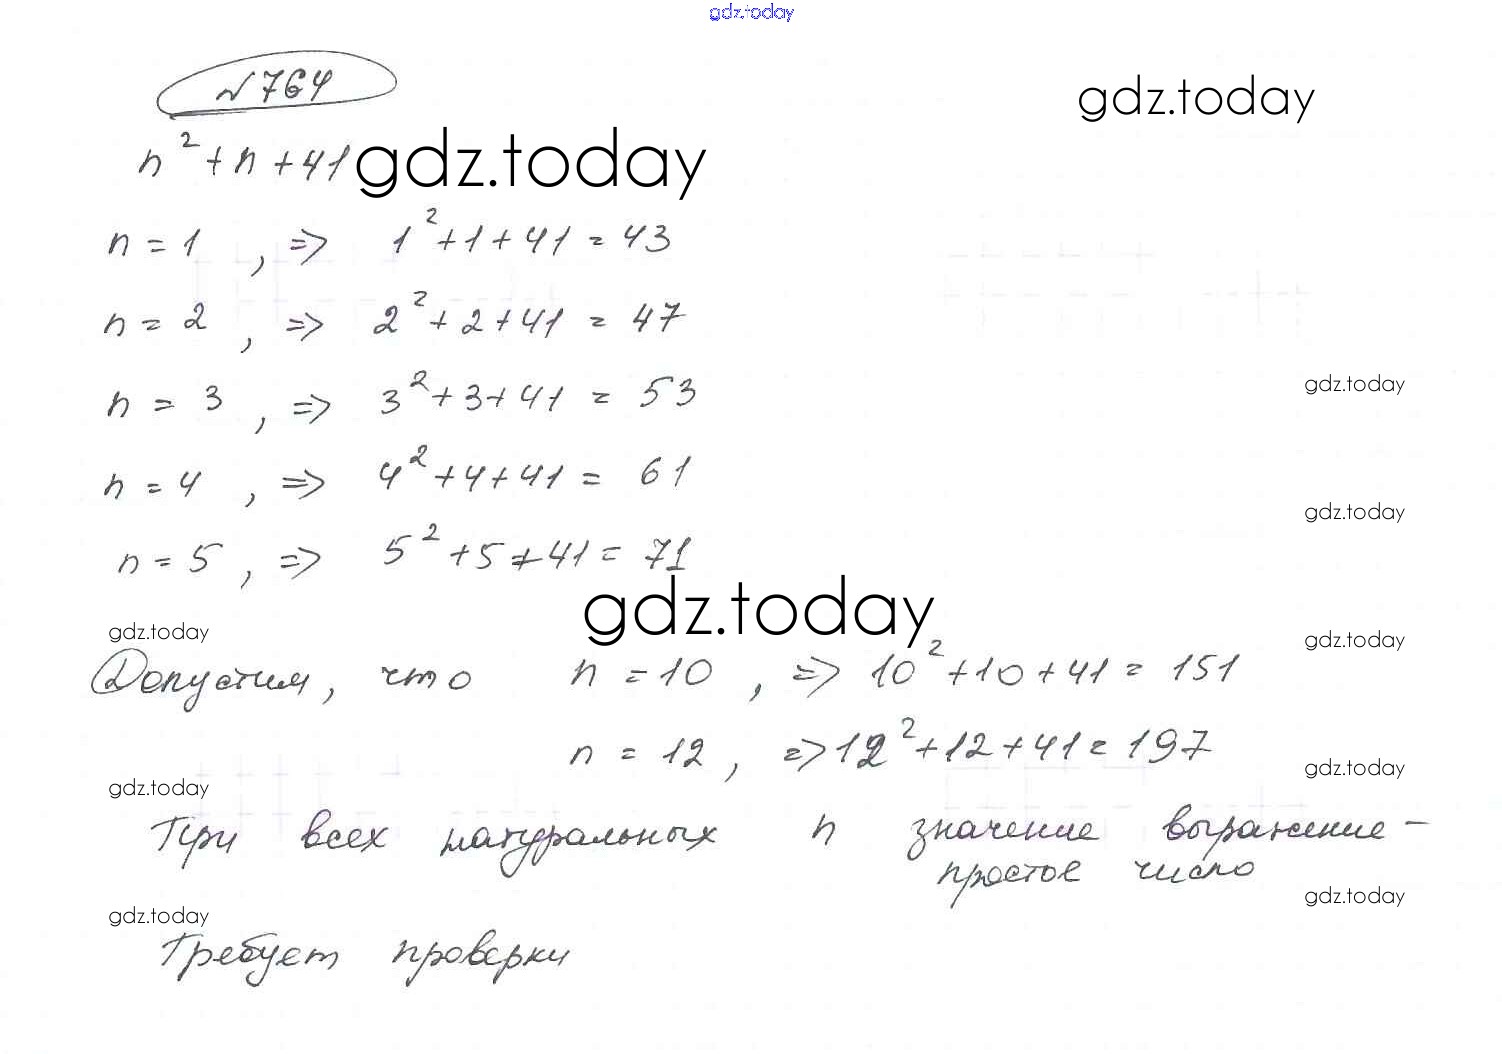 gdz.today
№764
gdz.today
n² + n + 41 gdz.today
n = 1, => 1² + 1 + 41 = 43
n = 2, => 2² + 2 + 41 = 47
n = 3, => 3² + 3 + 41 = 53
gdz.today
n = 4, => 4² + 4 + 41 = 61
gdz.today
n = 5, => 5² + 5 + 41 = 71
gdz.today
gdz.today
gdz.today
Допустим, что n = 10, => 10² + 10 + 41 = 151
n = 12, => 12² + 12 + 41 = 197
gdz.today
gdz.today
При всех натуральных n значение выражение –
простое число
gdz.today
gdz.today
Требует проверки